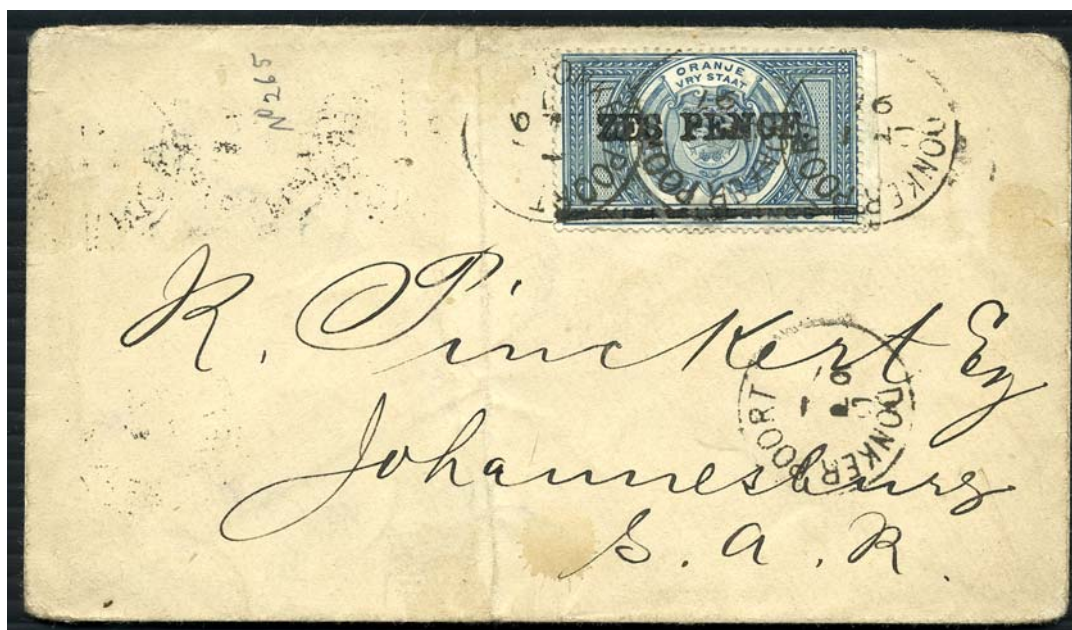 Nº 265
ORANJE
VRY STAAT
ZES PENCE.
DONKERPOORT
R. Pinckert Eq
Johannesburg
DONKERPOORT
S. A. R.